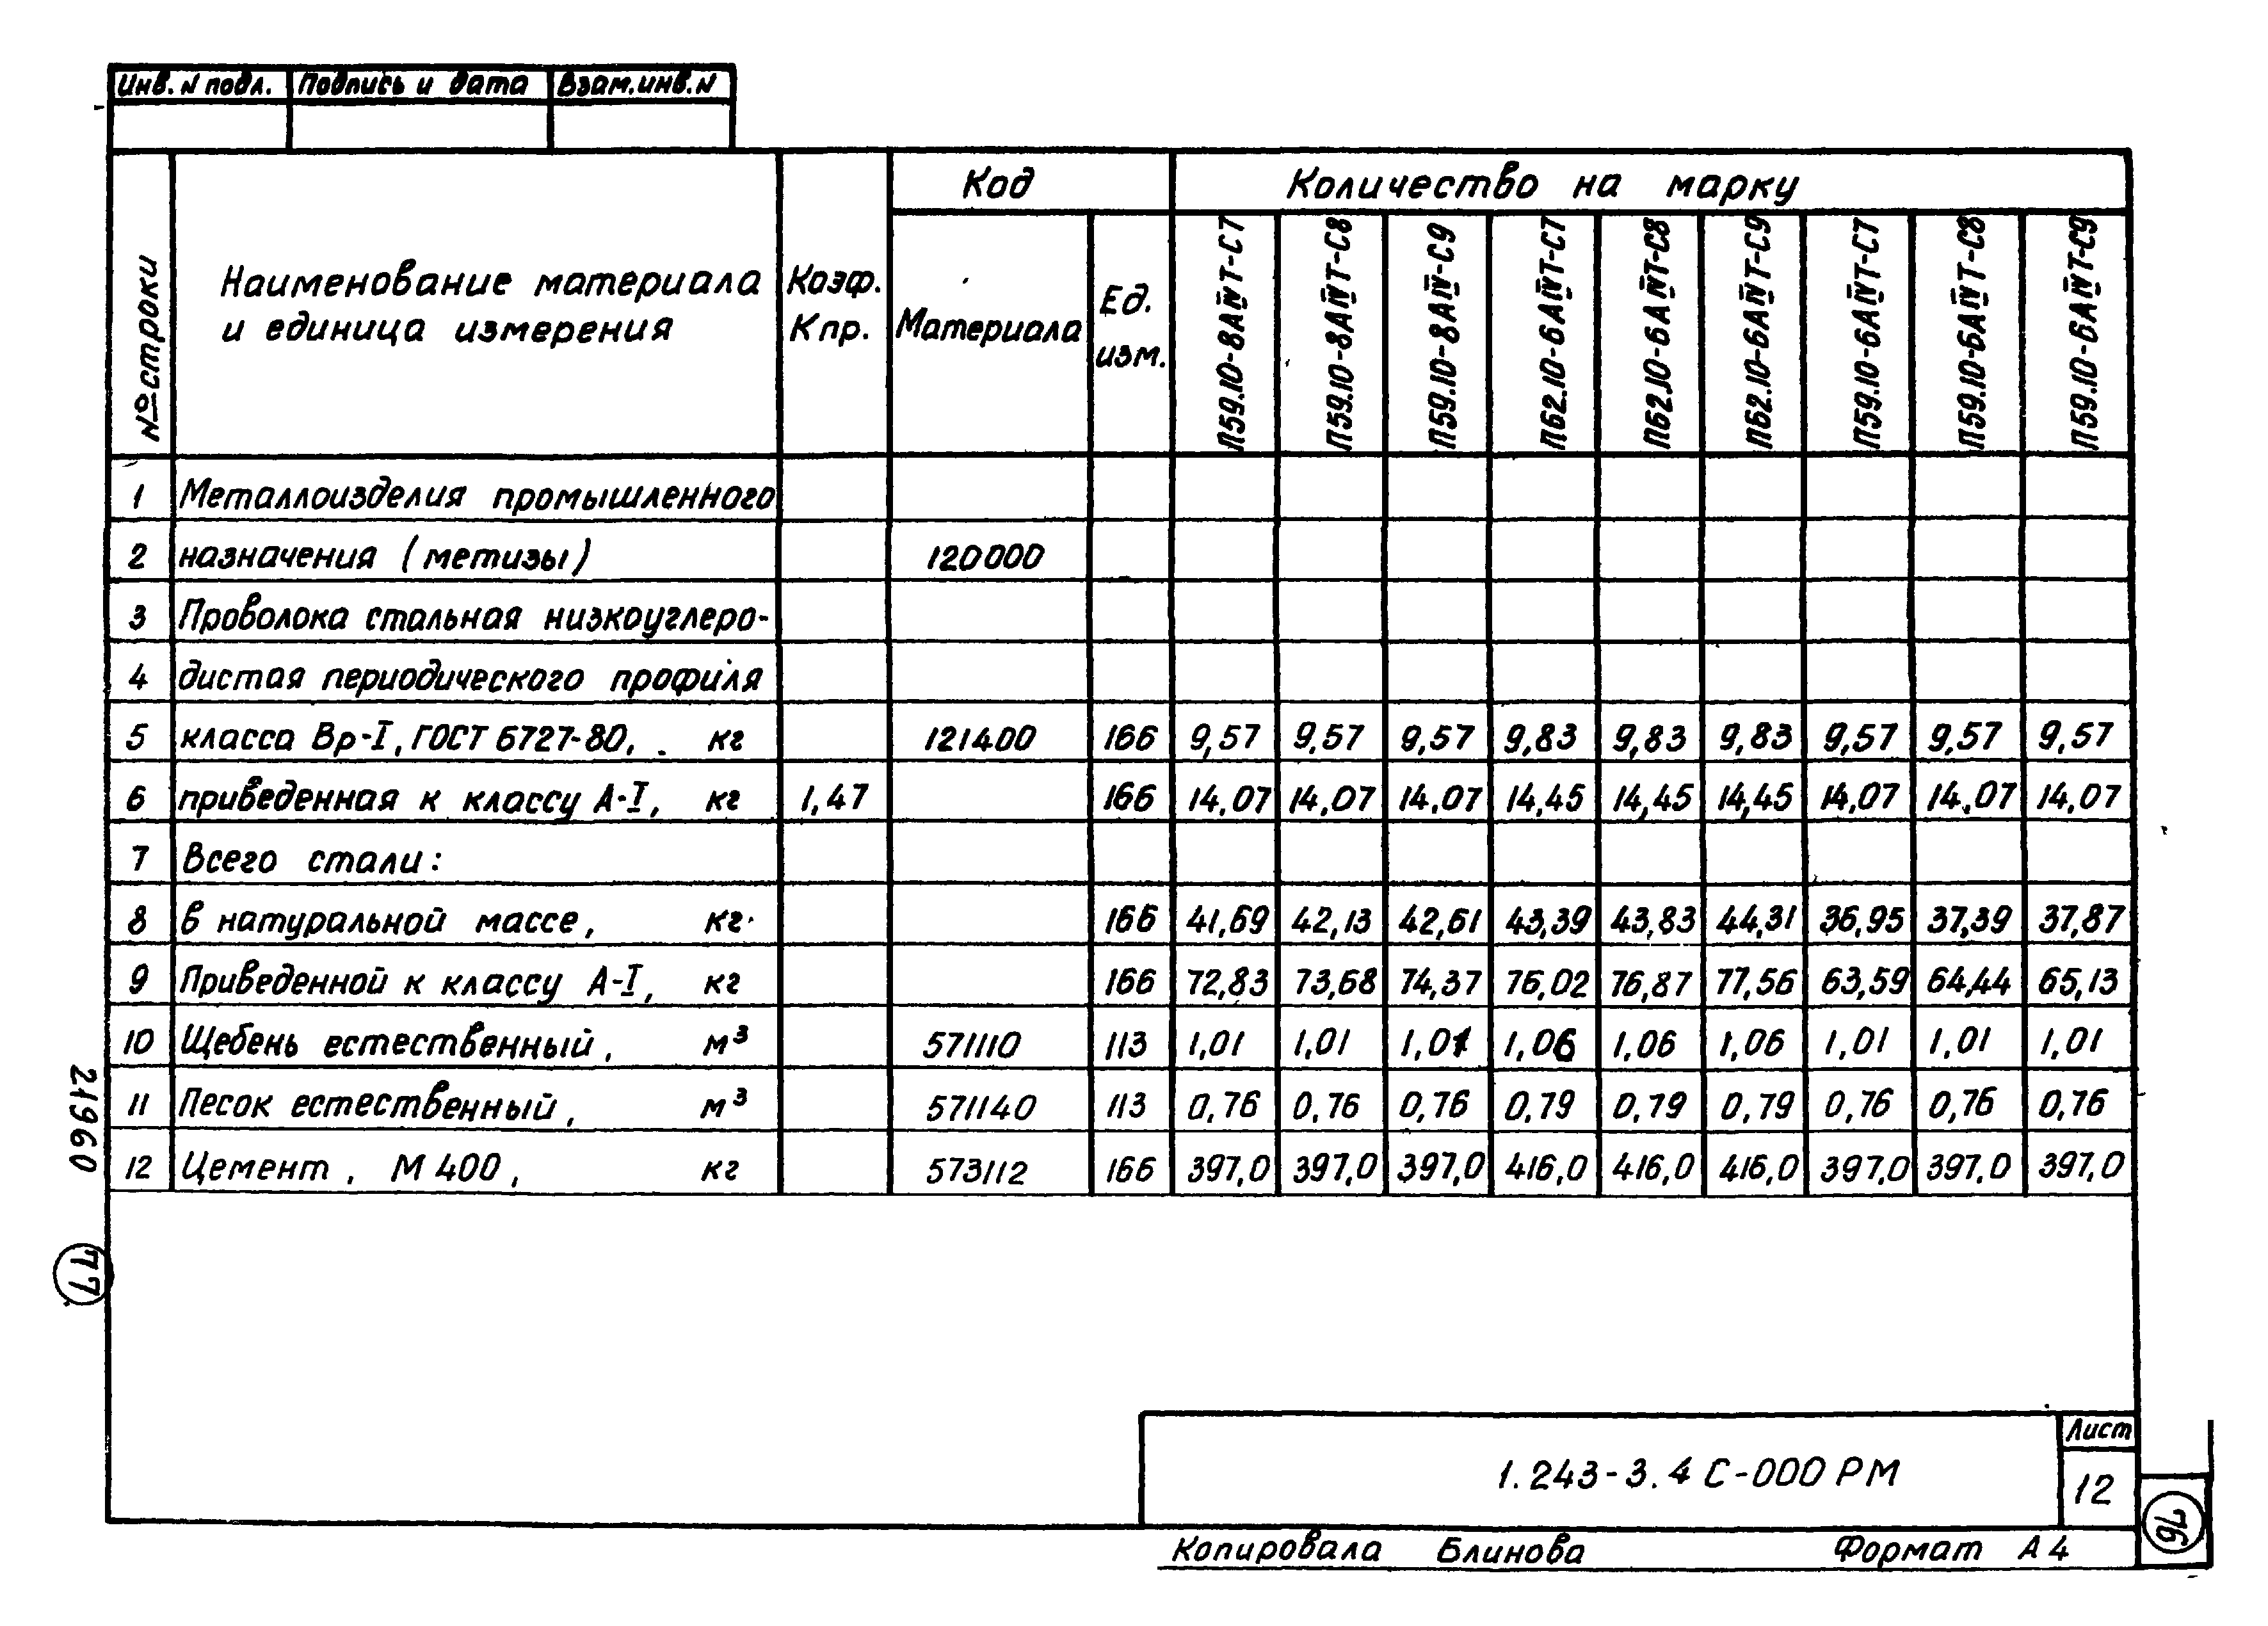 Инв. N подл. Подпись и дата Взам. инв. N
№ строки Наименование материала и единица измерения Коэф. Кпр. Код Количество на марку
Материала Ед. изм. П59.10-8АIVТ-С7 П59.10-8АIVТ-С8 П59.10-8АIV-С9 П62.10-6АIVТ-С7 П62.10-6АIVТ-С8 П62.10-6АIVТ-С9 П59.10-6АIVТ-С7 П59.10-6АIVТ-С8 П59.10-6АIVТ-С9
1 Металлоизделия промышленного
2 назначения (метизы) 120000
3 Проволока стальная низкоуглеро-
4 дистая периодического профиля
5 класса Вр-I, ГОСТ 6727-80, кг 121400 166 9,57 9,57 9,57 9,83 9,83 9,83 9,57 9,57 9,57
6 приведенная к классу А-I, кг 1,47 166 14,07 14,07 14,07 14,45 14,45 14,45 14,07 14,07 14,07
7 Всего стали:
8 в натуральной массе, кг 166 41,69 42,13 42,61 43,39 43,83 44,31 36,95 37,39 37,87
9 Приведенной к классу А-I, кг 166 72,83 73,68 74,37 76,02 76,87 77,56 63,59 64,44 65,13
10 Щебень естественный, м³ 571110 113 1,01 1,01 1,01 1,06 1,06 1,06 1,01 1,01 1,01
11 Песок естественный, м³ 571140 113 0,76 0,76 0,76 0,79 0,79 0,79 0,76 0,76 0,76
12 Цемент, М 400, кг 573112 166 397,0 397,0 397,0 416,0 416,0 416,0 397,0 397,0 397,0
21960
77
1.243-3.4 С-000 РМ
Лист
12
76
Копировала Блинова Формат А4